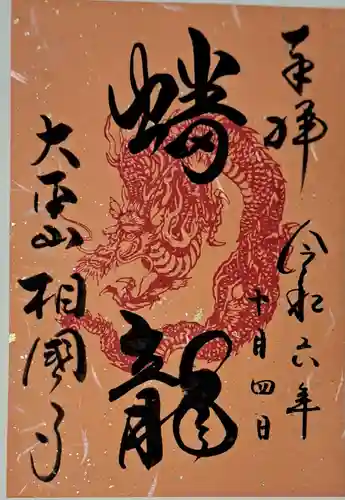 奉拝
令和六年
十月四日
蟠龍
大本山 相國寺